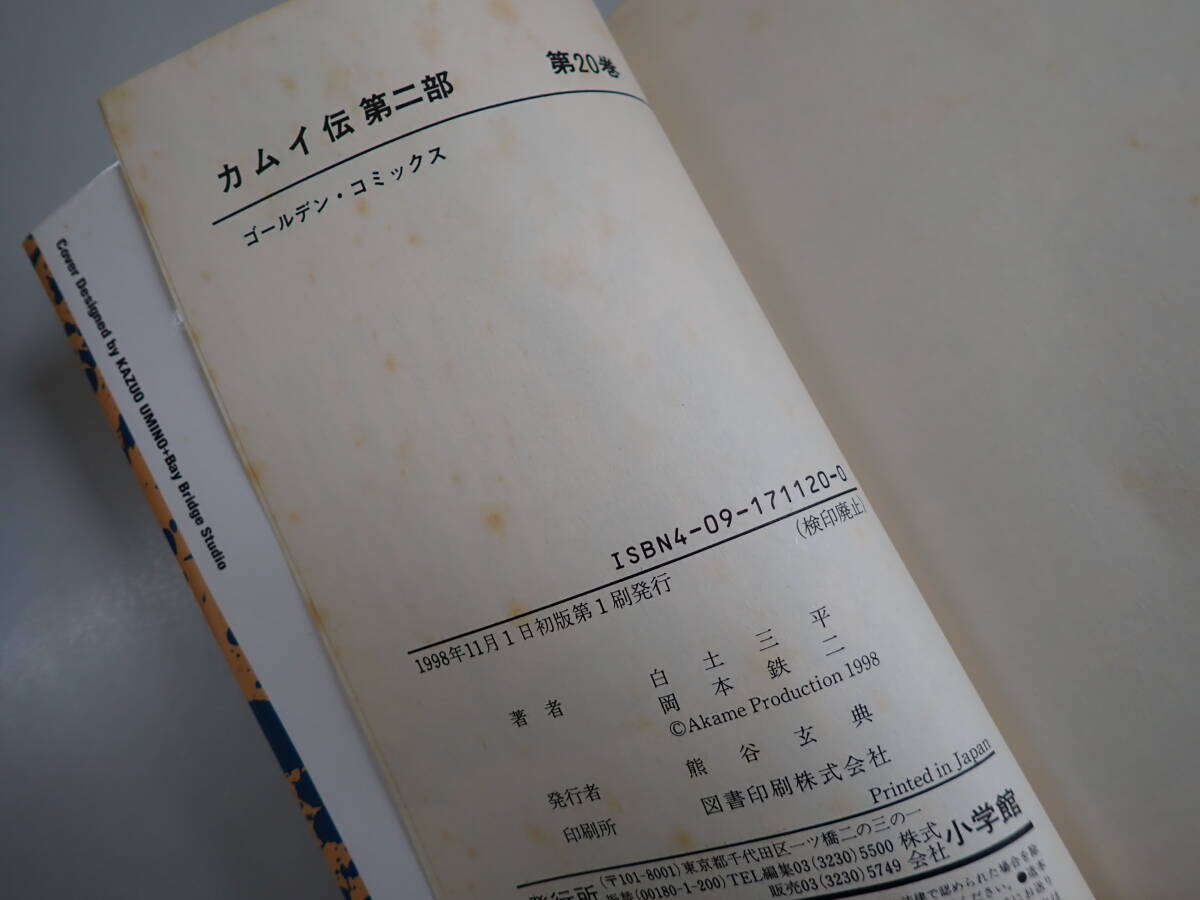 カムイ伝 第二部
第20巻
ゴールデン・コミックス
Cover Designed by KAZUO UMINO+Bay Bridge Studio
ISBN4-09-171120-0
(検印廃止)
1998年11月1日初版第1刷発行
著者
白土三平
岡本鉄二
©Akame Production 1998
発行者
熊谷玄典
印刷所
図書印刷株式会社
Printed in Japan
発行所
(〒101-8001)東京都千代田区一ツ橋二の三の一
振替(00180-1-200)TEL編集03(3230)5500
販売03(3230)5749
株式会社
小学館
で認められた場合を除
ください。●造本